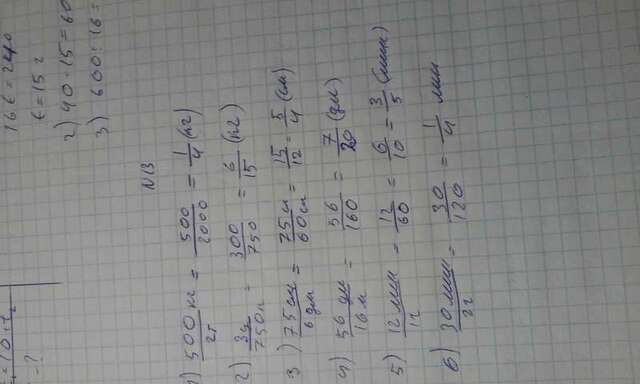 16t = 240
t = 15 г
2) 40 · 15 = 60
3) 600 : 16 =
N13
1) 500 кг / 2т = 500/2000 = 1/4 (кг)
2) 3g / 750 г = 300/750 = 6/15 (кг)
3) 75 см / 6 дм = 75 см / 60 см = 15/12 = 5/4 (см)
4) 56 дм / 16 м = 56/160 = 7/20 (дм)
5) 12 мин / 1г = 12/60 = 6/10 = 3/5 (мин)
6) 30 мин / 2г = 30/120 = 1/4 мин
-?